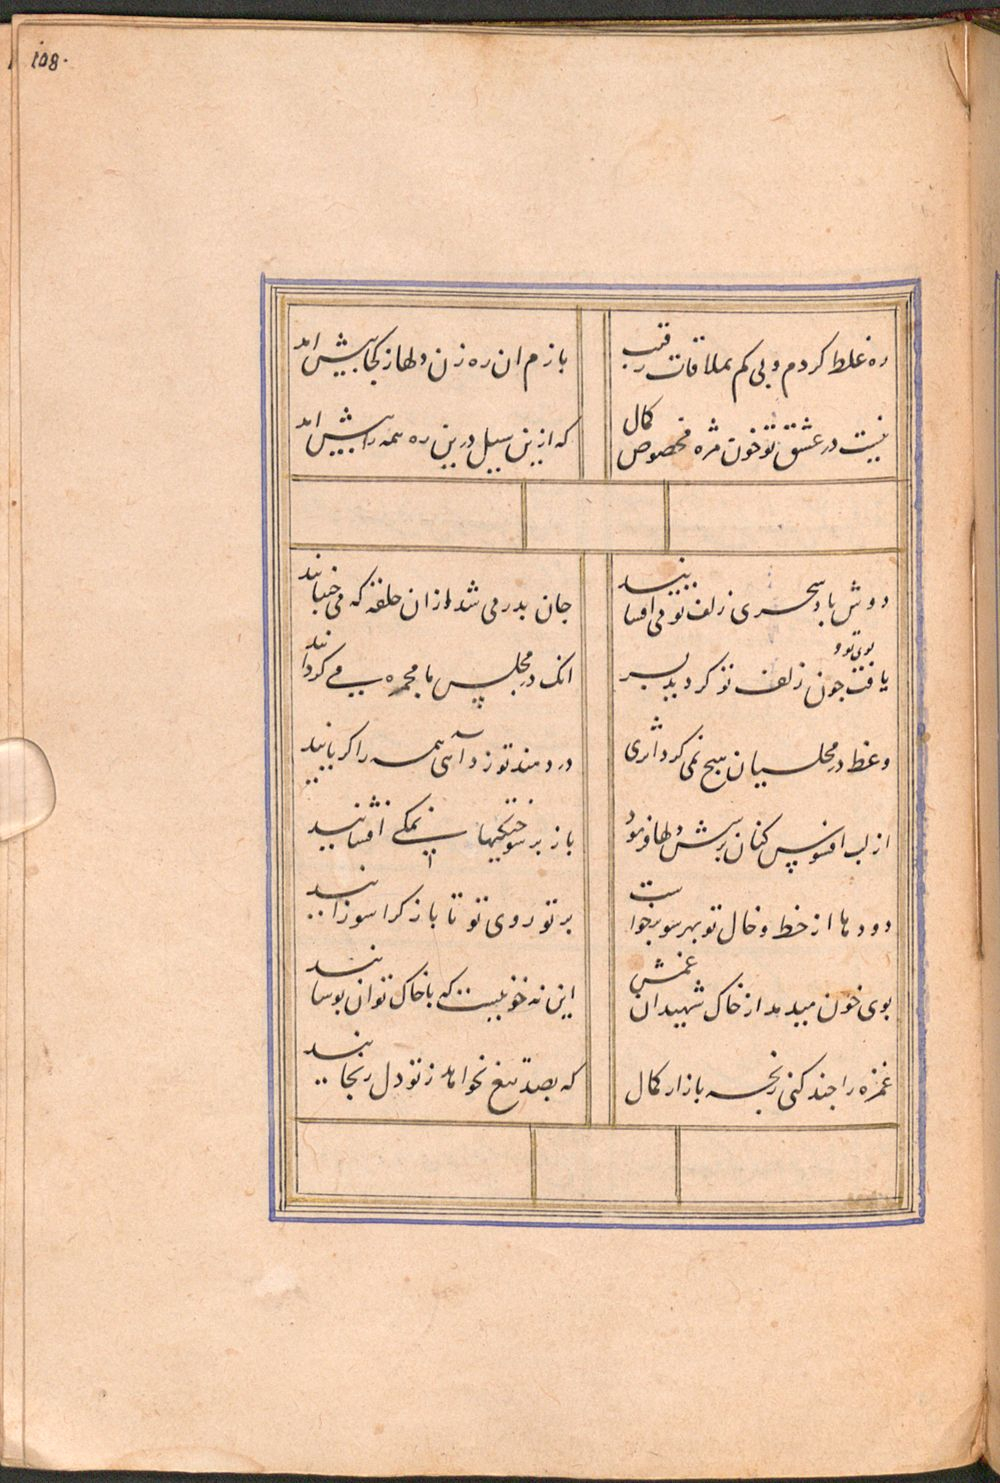 108.
ره غلط کردم و بی کم بملاقات رقیب
بازم ان ره زن دلها ز کجا پیش امد
نیست در عشق تو خون مژه مخصوص کمال
که ازین سیل درین ره همه را پیش امد
دوش باد سحری زلف تو می افشانید
جان بدر می شد ازان حلقه که می جنبانید
یافت چون زلف تو گردید بسر بوی تو و
انک در مجلس ما مجمره می گردانید
وعظ در مجلسیان هیچ نمی کرد اثری
دردمند تو زد آهی همه را گریانید
از لب افسوس کنان پرسش دلها فرمود
باز بر سوختگیها نمکی افشانید
دودها از خط و خال تو بهر سو برخواست
پرتو روی تو تا باز کرا سوزانید
بوی خون میدهد از خاک شهیدان غمش
این نه خونیست که با خاک توان پوسانید
غمزه را چند کنی رنجه بازار کمال
که بصد تیغ نخواهد ز تو دل رنجانید